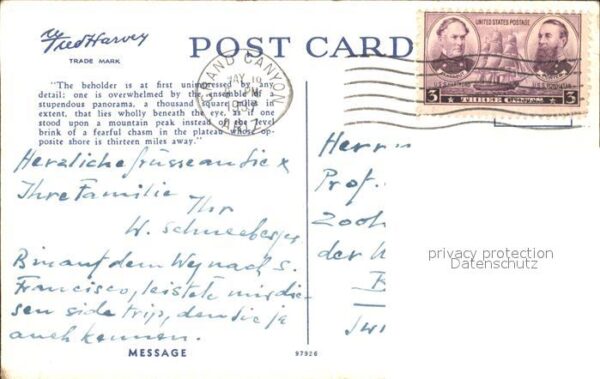 Fred Harvey
TRADE MARK
POST CARD
"The beholder is at first unimpressed by any
detail; one is overwhelmed by the ensemble of a
stupendous panorama, a thousand square miles in
extent, that lies wholly beneath the eye, as if one
stood upon a mountain peak instead of the level
brink of a fearful chasm in the plateau whose op-
posite shore is thirteen miles away."
GRAND CANYON
MAY 10
ARIZ.
UNITED STATES POSTAGE
3 THREE CENTS 3
Herzliche Grüsse an Sie &
Ihre Familie
Ihr
W. Schneeberger
Bin auf dem Weg nach S.
Francisco, leistete mir die-
sen side trip, den Sie ja
auch kennen.
Herrn
Prof.
Zooh
der
privacy protection
Datenschutz
MESSAGE
97926